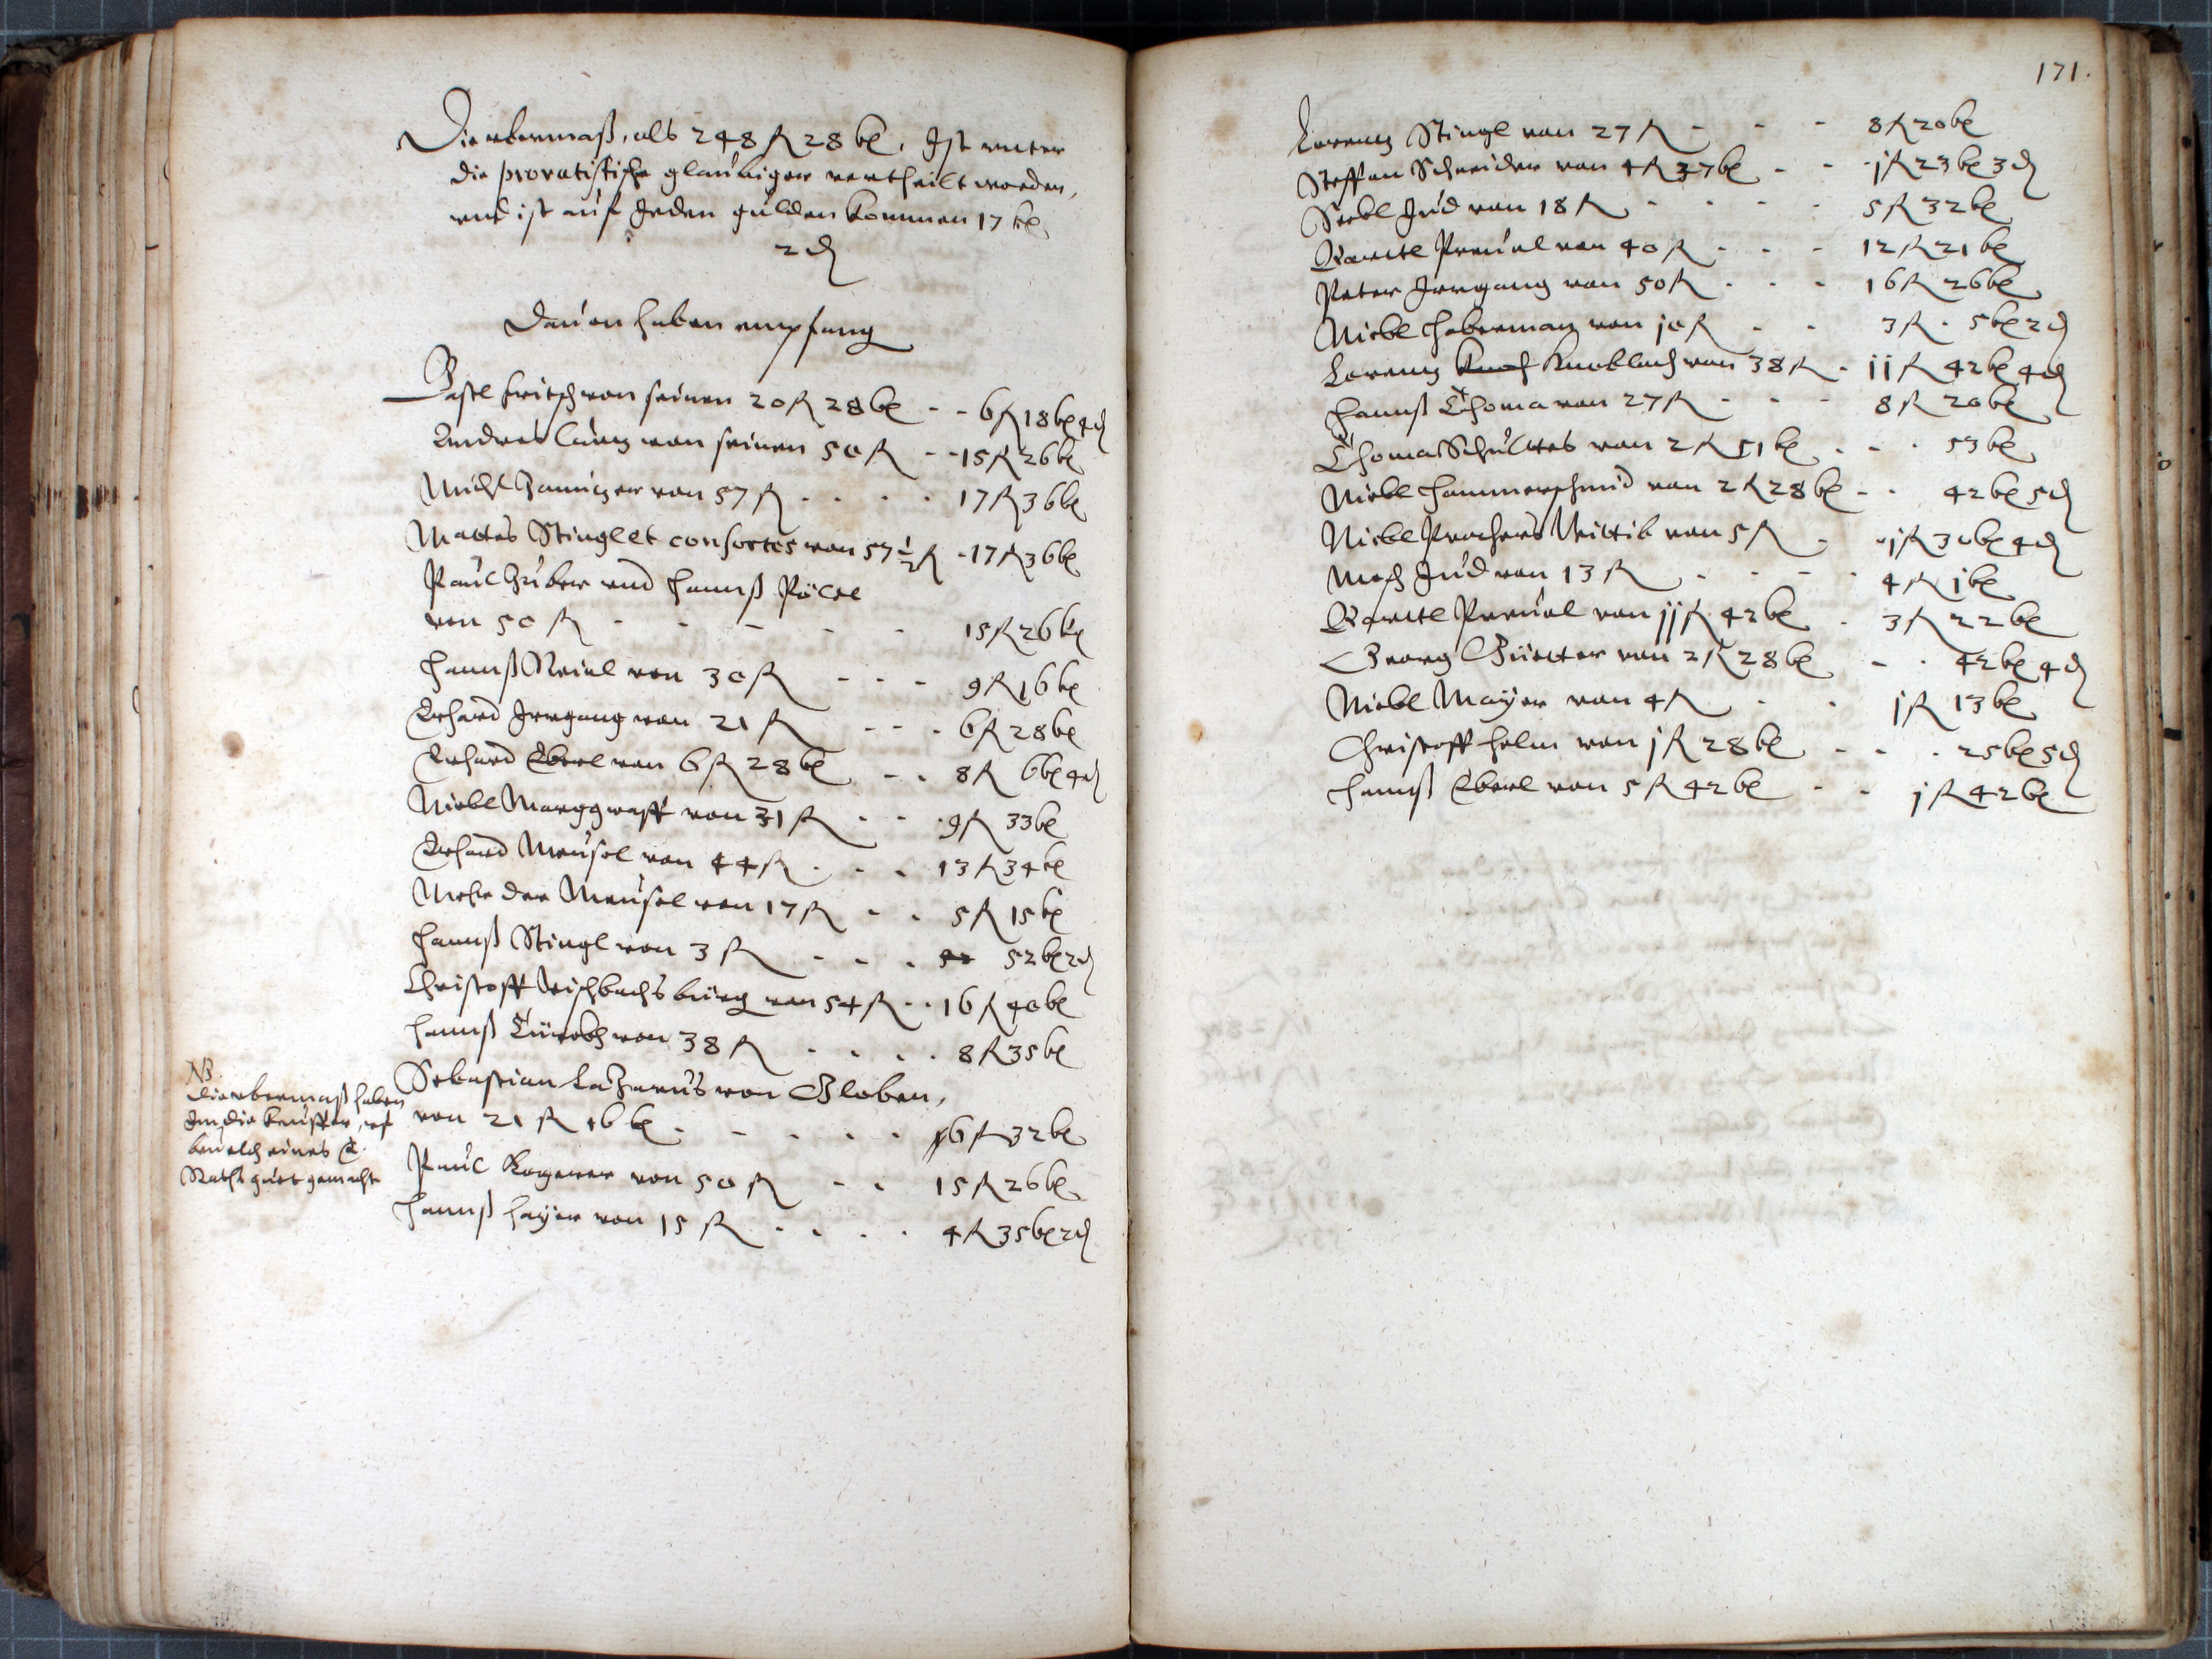 Die vbermaß, als 248 fl 28 kr, Ist vnter
die provatistische glaubiger vertheilt worden,
vnd ist auf Jeden gulden kommen 17 kr
2 ₰
Dauon haben empfang
Pastl Fritsch von seinen 20 fl 28 kr - - 6 fl 18 kr 4 ₰
Andres Lang von seinen 50 fl - - 15 fl 26 kr
Michl von 57 fl - - - - 17 fl 36 kr
Mattes Stingl et consortes von 57 ½ fl - 17 fl 36 kr
Paul Huber vnd Hannß Pöltl
von 50 fl - - - - - 15 fl 26 kr
Hannß von 30 fl - - - 9 fl 16 kr
Erhard Irrgang von 21 fl - - - 6 fl 28 kr
Erhard Eberl von 6 fl 28 kr - - 8 fl 6 kr 4 ₰
Nickl Marggraff von 31 fl - - - 9 fl 33 kr
Erhard Meusel von 44 fl - - - 13 fl 34 kr
Mehr der Meusel von 17 fl - - 5 fl 15 kr
Hannß Stingl von 3 fl - - - 52 kr 2 ₰
Christoff von 54 fl - - 16 fl 40 kr
Hannß von 38 fl - - - - 8 fl 35 kr
Sebastian Lazarus von Globen,
von 21 fl 16 kr - - - - - 6 fl 32 kr
Paul Kagerer von 50 fl - - 15 fl 26 kr
Hannß Hayer von 15 fl - - - - 4 fl 35 kr 2 ₰
NB.
Die vbermaß haben
Im die keuffer, vf
beuelch eines E.
Raths guet gemacht
171.
Lorenz Stingl von 27 fl - - - 8 fl 20 kr
Steffan Schneider von 4 fl 37 kr - - - j fl 23 kr 3 ₰
Jud von 18 fl - - - - 5 fl 32 kr
Bartl von 40 fl - - - 12 fl 21 kr
Peter Irrgang von 50 fl - - - 16 fl 26 kr
Nickl Haberman von j0 fl - - 3 fl - 5 kr 2 ₰
Lorenz Knobloch von 38 fl - jj fl 42 kr 4 ₰
Hannß Thoma von 27 fl - - - 8 fl 20 kr
Thoma Schultes von 2 fl 51 kr - - - 53 kr
Nickl Hammerschmid von 2 fl 28 kr - - 42 kr 5 ₰
Nickl Wittib von 5 fl - - j fl 30 kr 4 ₰
Jud von 13 fl - - - - 4 fl j kr
Bartl von jj fl 42 kr - 3 fl 22 kr
Georg von 2 fl 28 kr - - 42 kr 4 ₰
Nickl Mayer von 4 fl - - j fl 13 kr
Christoff Helm von j fl 28 kr - - - 25 kr 5 ₰
Hannß Eberl von 5 fl 42 kr - - j fl 42 kr